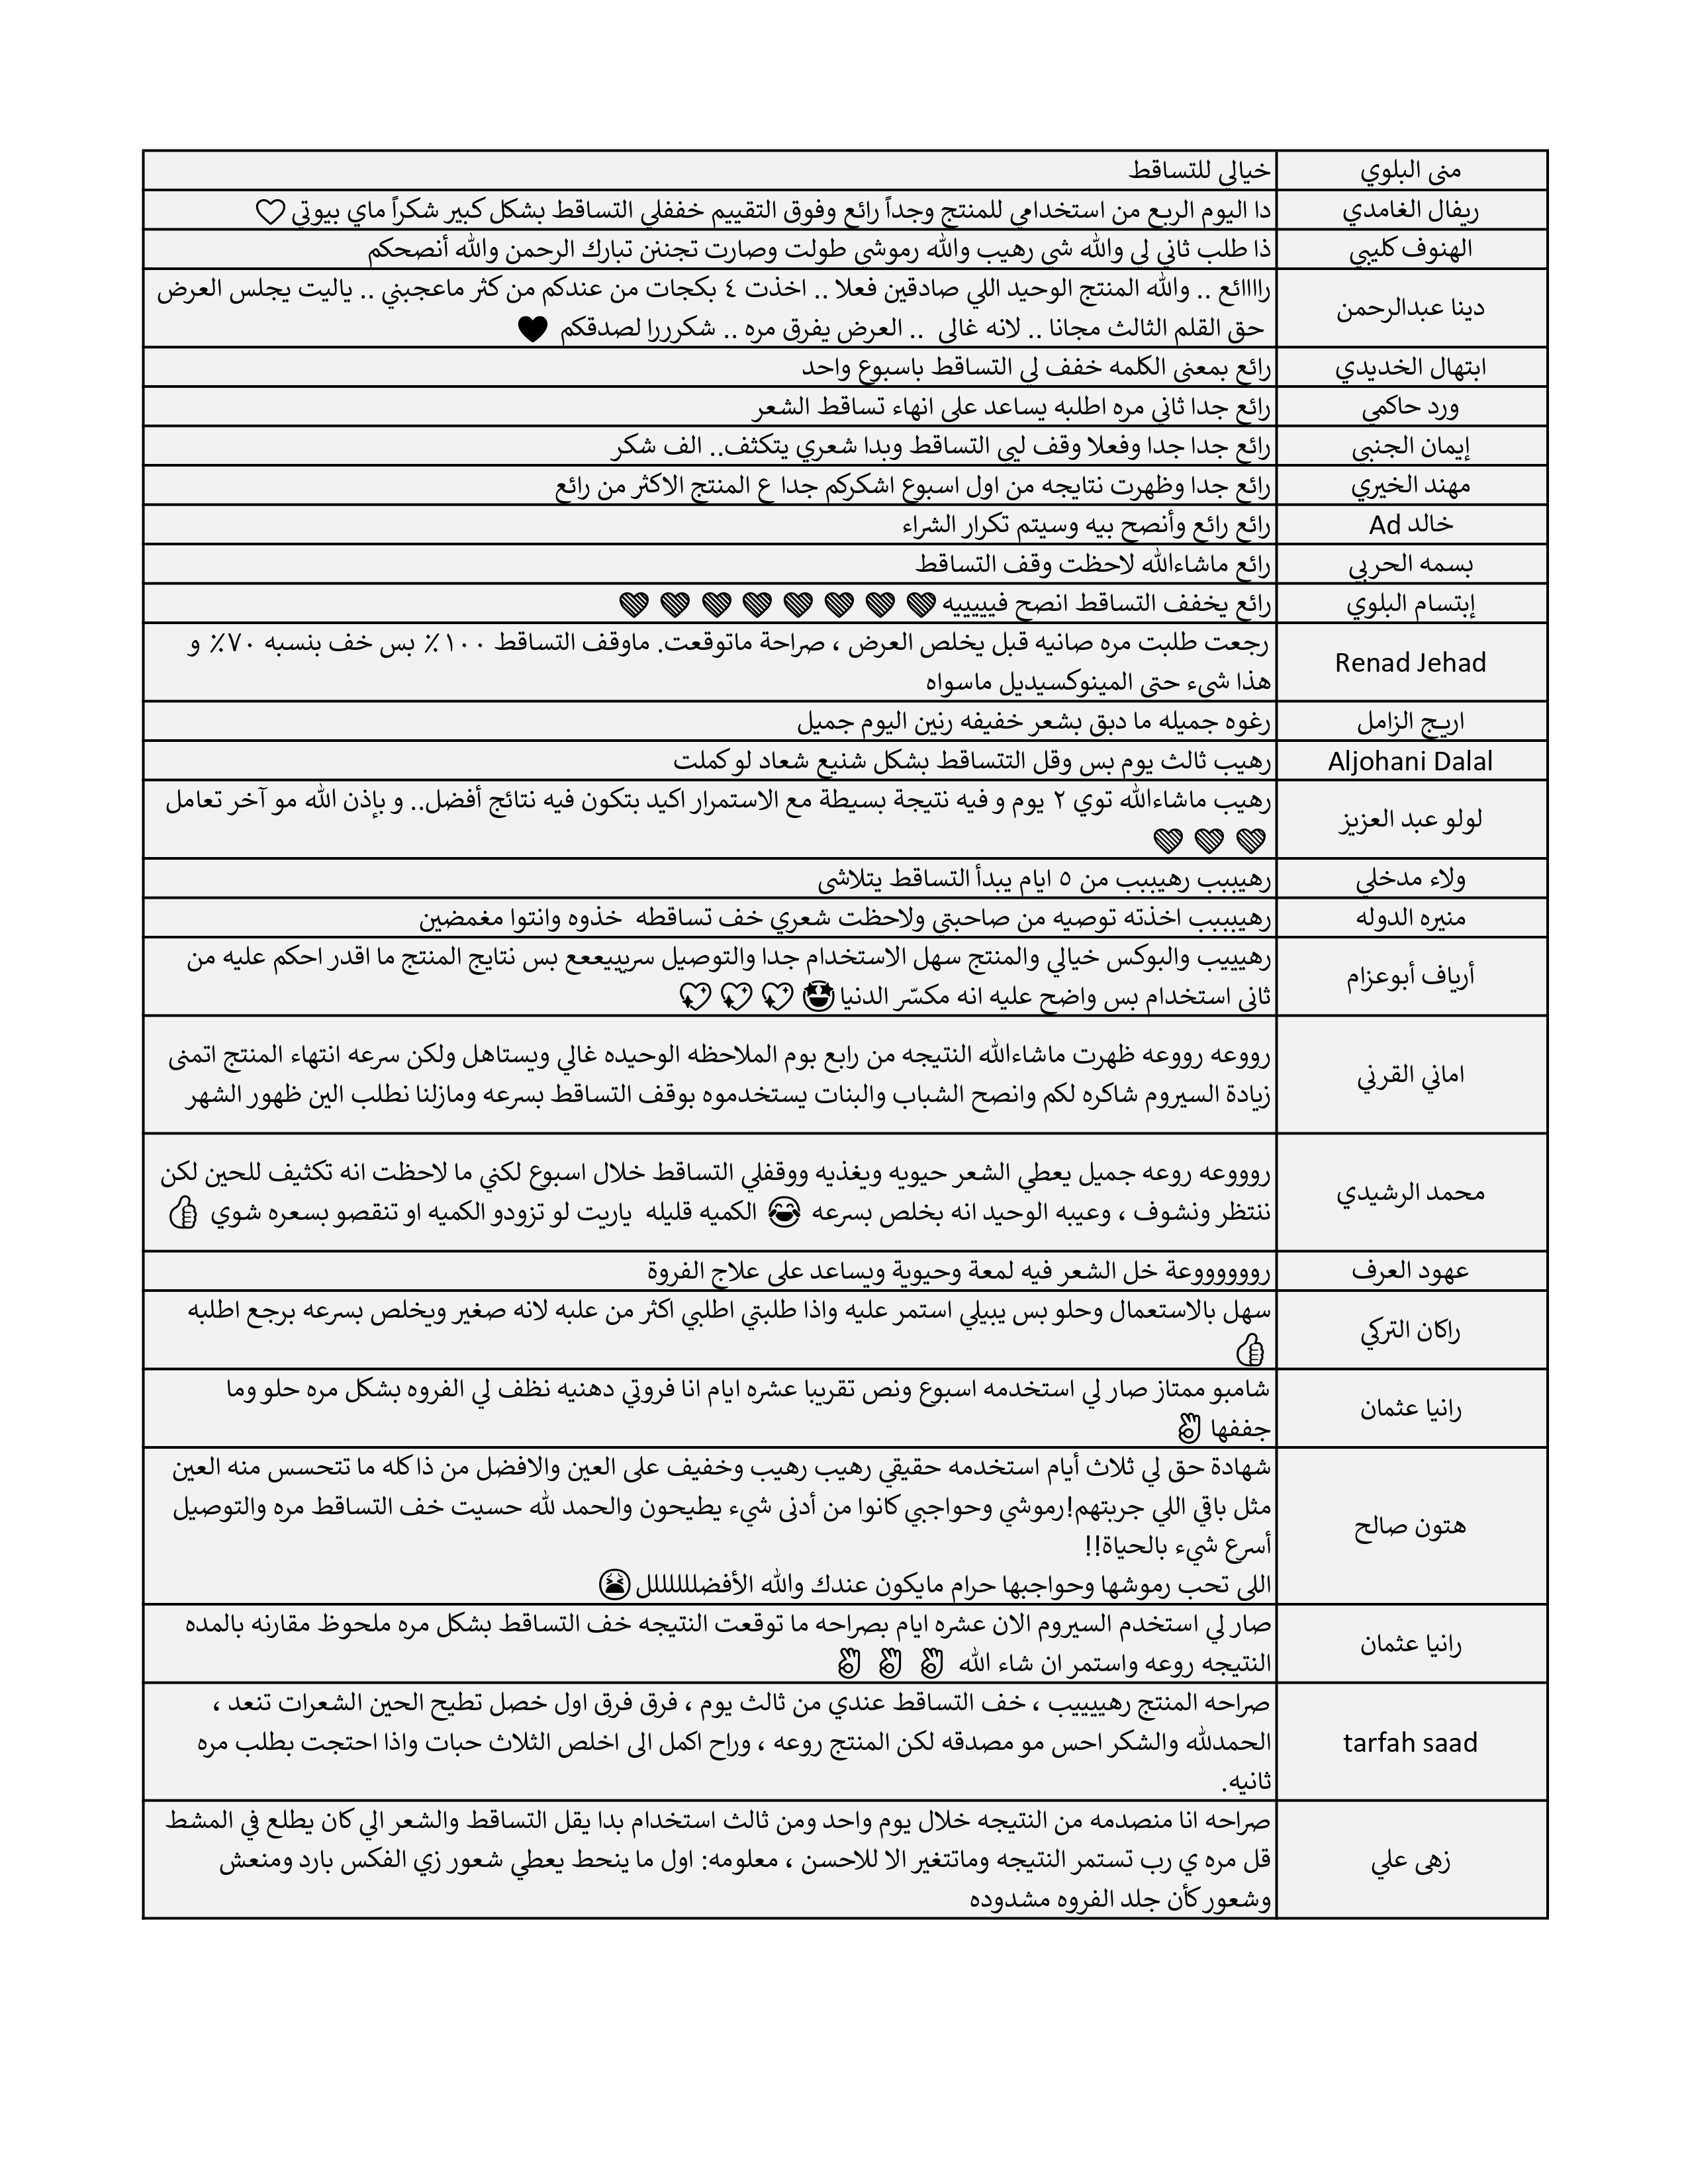 منى البلوي
خيالي للتساقط
ريفال الغامدي
دا اليوم الربع من استخدامي للمنتج وجداً رائع وفوق التقييم خففلي التساقط بشكل كبير شكراً ماي بيوتي 🤍
الهنوف كليبي
ذا طلب ثاني لي والله شي رهيب والله رموشي طولت وصارت تجننن تبارك الرحمن والله أنصحكم
دينا عبدالرحمن
راااائع .. والله المنتج الوحيد اللي صادقين فعلا .. اخذت ٤ بكجات من عندكم من كثر ماعجبني .. ياليت يجلس العرض
حق القلم الثالث مجانا .. لانه غالي .. العرض يفرق مره .. شكرررا لصدقكم 🖤
ابتهال الخديدي
رائع بمعنى الكلمه خفف لي التساقط باسبوع واحد
ورد حاكمي
رائع جدا ثاني مره اطلبه يساعد على انهاء تساقط الشعر
إيمان الجنبي
رائع جدا جدا وفعلا وقف ليي التساقط وبدا شعري يتكثف.. الف شكر
مهند الخيري
رائع جدا وظهرت نتايجه من اول اسبوع اشكركم جدا ع المنتج الاكثر من رائع
خالد Ad
رائع رائع وأنصح بيه وسيتم تكرار الشراء
بسمه الحربي
رائع ماشاءالله لاحظت وقف التساقط
إبتسام البلوي
رائع يخفف التساقط انصح فيييييه 💚 💚 💚 💚 💚 💚 💚 💚
Renad Jehad
رجعت طلبت مره صانيه قبل يخلص العرض ، صراحة ماتوقعت. ماوقف التساقط ١٠٠٪ بس خف بنسبه ٧٠٪ و
هذا شيء حتى المينوكسيديل ماسواه
اريج الزامل
رغوه جميله ما دبق بشعر خفيفه رنين اليوم جميل
Aljohani Dalal
رهيب ثالث يوم بس وقل التتساقط بشكل شنيع شعاد لو كملت
لولو عبد العزيز
رهيب ماشاءالله توي ٢ يوم و فيه نتيجة بسيطة مع الاستمرار اكيد بتكون فيه نتائج أفضل.. و بإذن الله مو آخر تعامل
💚 💚 💚
ولاء مدخلي
رهيببب رهيببب من ٥ ايام يبدأ التساقط يتلاشى
منيره الدوله
رهيبببب اخذته توصيه من صاحبتي ولاحظت شعري خف تساقطه خذوه وانتوا مغمضين
أرياف أبوعزام
رهيييب والبوكس خيالي والمنتج سهل الاستخدام جدا والتوصيل سرييييععع بس نتايج المنتج ما اقدر احكم عليه من
ثاني استخدام بس واضح عليه انه مكسّر الدنيا 🤩 💖 💖 💖
اماني القرني
رووعه رووعه ظهرت ماشاءالله النتيجه من رابع بوم الملاحظه الوحيده غالي ويستاهل ولكن سرعه انتهاء المنتج اتمنى
زيادة السيروم شاكره لكم وانصح الشباب والبنات يستخدموه بوقف التساقط بسرعه ومازلنا نطلب الين ظهور الشهر
محمد الرشيدي
روووعه روعه جميل يعطي الشعر حيويه ويغذيه ووقفلي التساقط خلال اسبوع لكني ما لاحظت انه تكثيف للحين لكن
ننتظر ونشوف ، وعيبه الوحيد انه بخلص بسرعه 😂 الكميه قليله ياريت لو تزودو الكميه او تنقصو بسعره شوي 👍
عهود العرف
روووووووعة خل الشعر فيه لمعة وحيوية ويساعد على علاج الفروة
راكان التركي
سهل بالاستعمال وحلو بس يبيلي استمر عليه واذا طلبتي اطلبي اكثر من علبه لانه صغير ويخلص بسرعه برجع اطلبه
👍
رانيا عثمان
شامبو ممتاز صار لي استخدمه اسبوع ونص تقريبا عشره ايام انا فروتي دهنيه نظف لي الفروه بشكل مره حلو وما
جففها 👌
هتون صالح
شهادة حق لي ثلاث أيام استخدمه حقيقي رهيب رهيب وخفيف على العين والافضل من ذا كله ما تتحسس منه العين
مثل باقي اللي جربتهم!رموشي وحواجبي كانوا من أدنى شيء يطيحون والحمد لله حسيت خف التساقط مره والتوصيل
أسرع شيء بالحياة!!
اللي تحب رموشها وحواجبها حرام مايكون عندك والله الأفضلللللللل 😫
رانيا عثمان
صار لي استخدم السيروم الان عشره ايام بصراحه ما توقعت النتيجه خف التساقط بشكل مره ملحوظ مقارنه بالمده
النتيجه روعه واستمر ان شاء الله 👌 👌 👌
tarfah saad
صراحه المنتج رهييييب ، خف التساقط عندي من ثالث يوم ، فرق فرق اول خصل تطيح الحين الشعرات تنعد ،
الحمدلله والشكر احس مو مصدقه لكن المنتج روعه ، وراح اكمل الى اخلص الثلاث حبات واذا احتجت بطلب مره
ثانيه.
زهى علي
صراحه انا منصدمه من النتيجه خلال يوم واحد ومن ثالث استخدام بدا يقل التساقط والشعر الي كان يطلع في المشط
قل مره ي رب تستمر النتيجه وماتتغير الا للاحسن ، معلومه: اول ما ينحط يعطي شعور زي الفكس بارد ومنعش
وشعور كأن جلد الفروه مشدوده